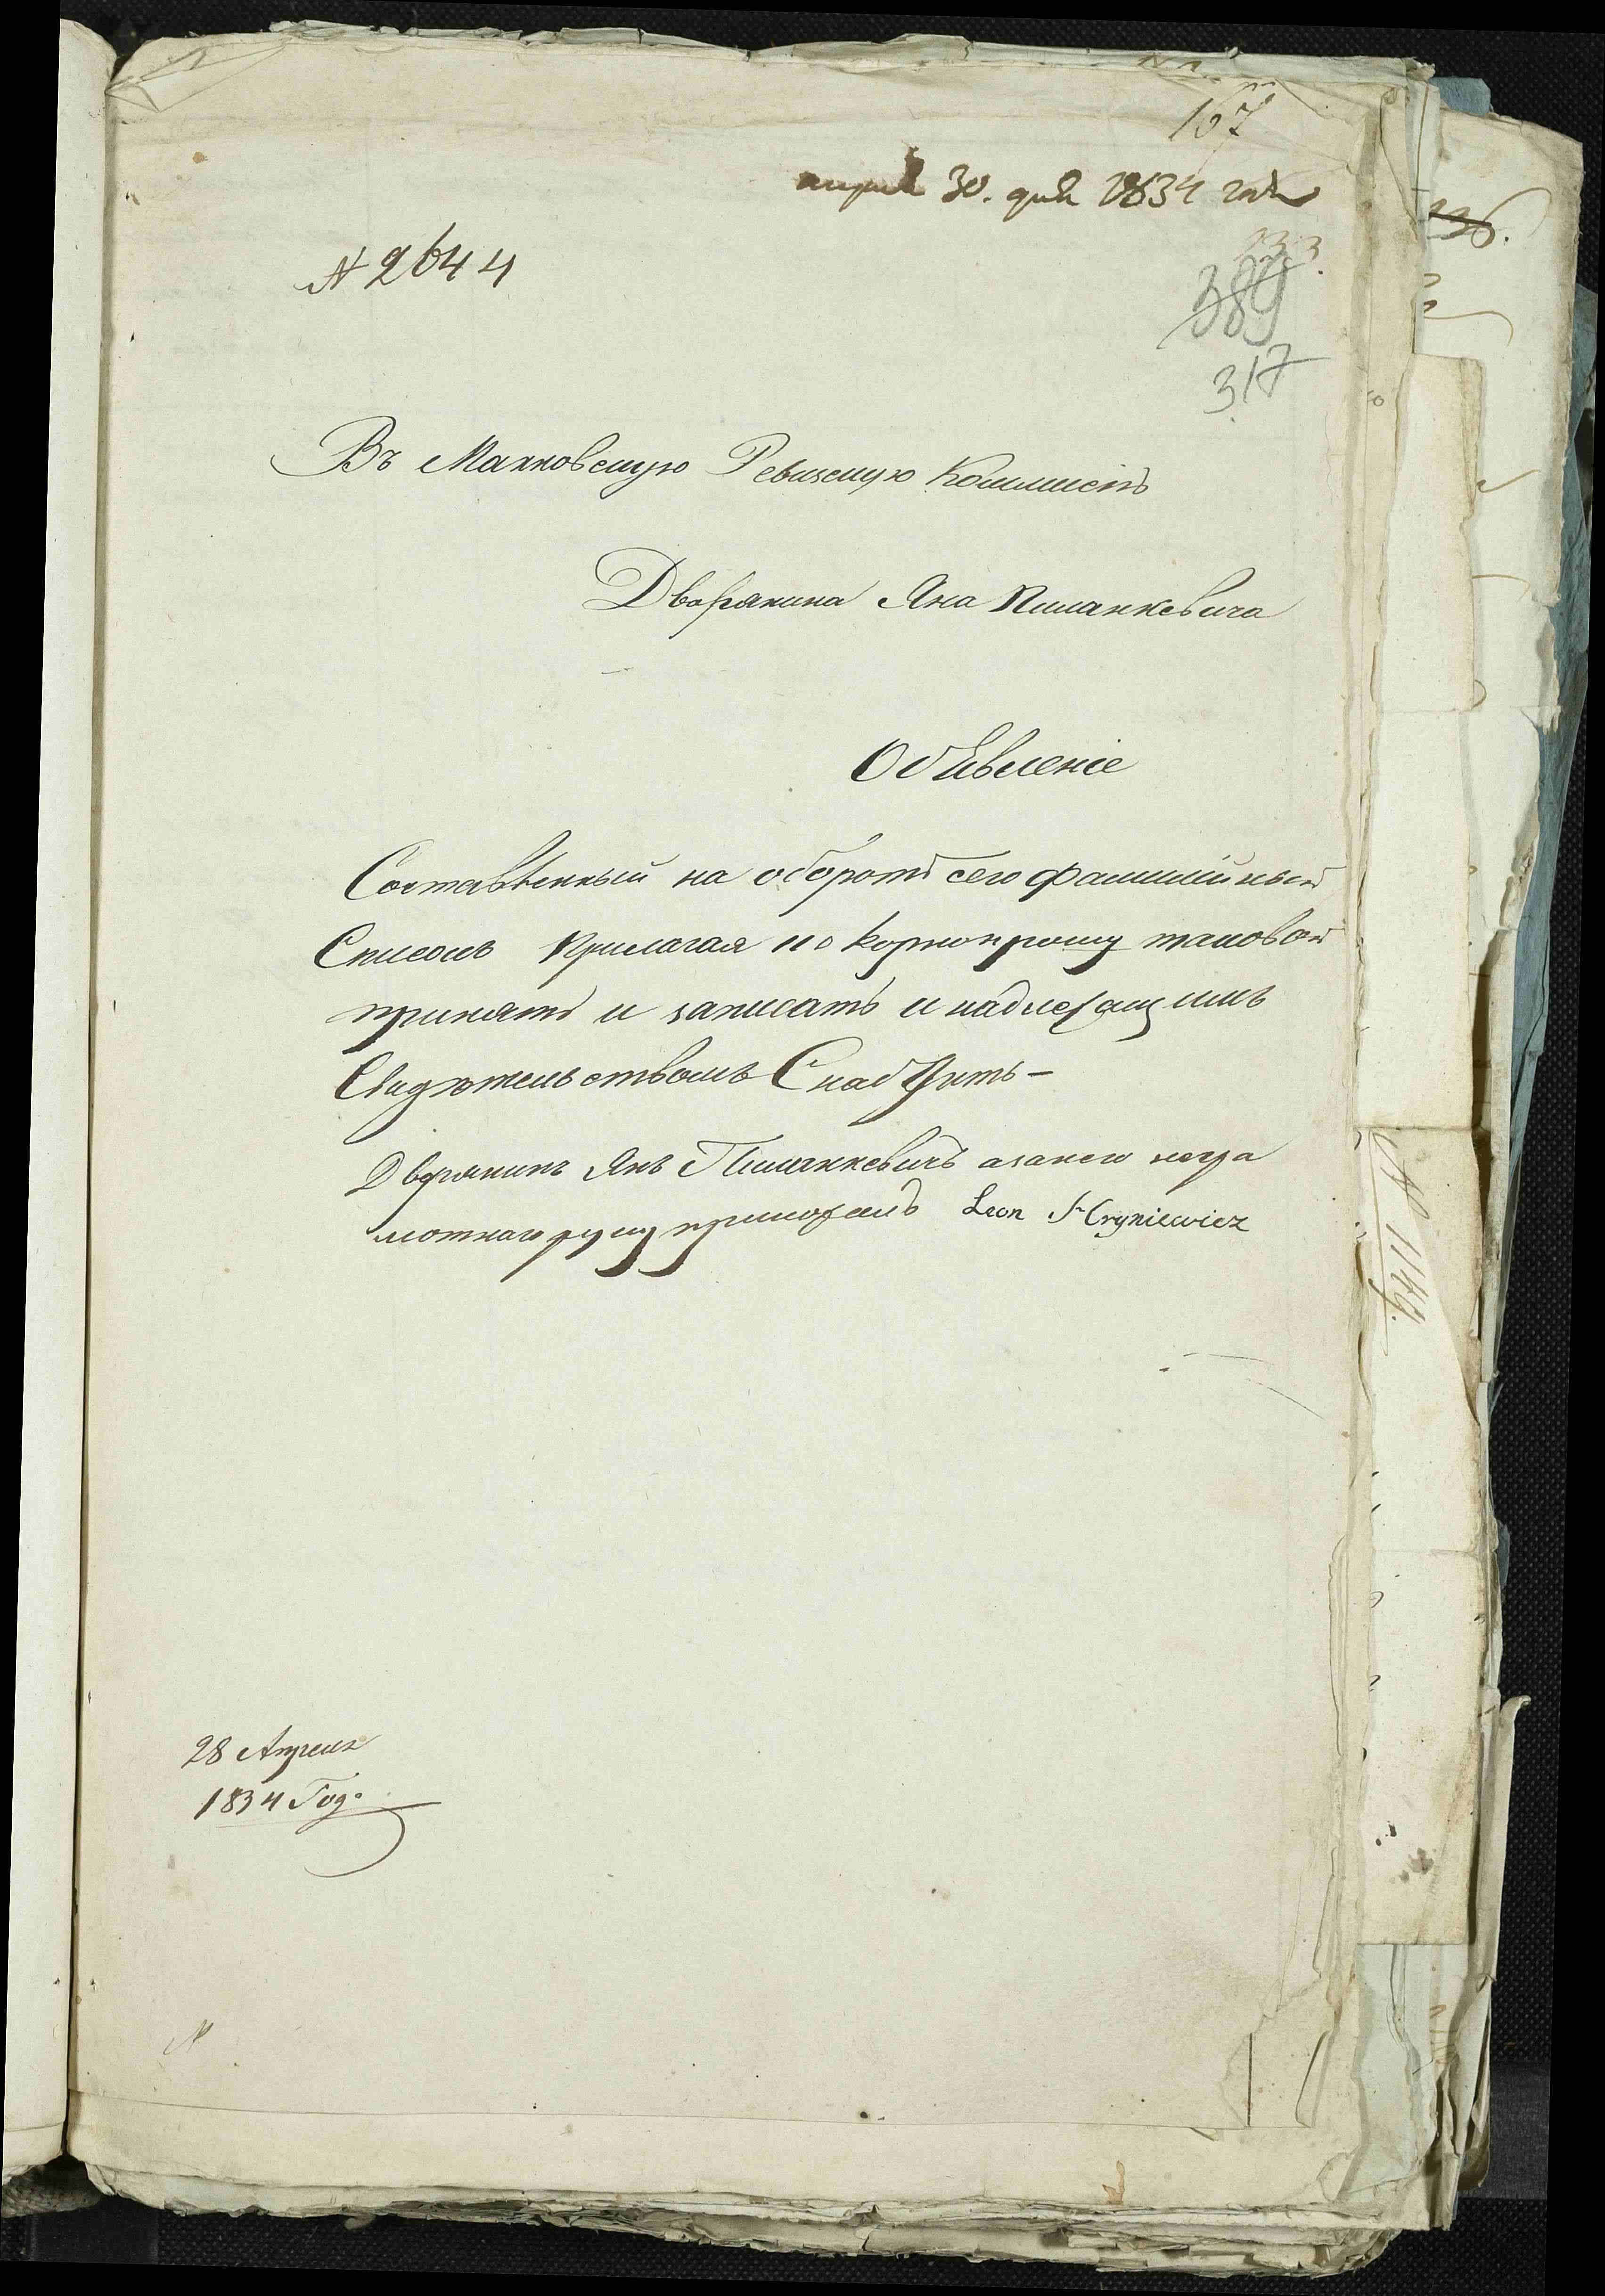 167
апреля 30. дня 1834 года
№ 2644
233.
389
317
Въ Махновскую Ревизскую Коммисію
Дворянина Яна Климанкевича
Объявленіе
Составленный на оборотѣ сего фамилійный
Списокъ Прилагая покорно прошу таковой
принять и записать и надлежащимъ
Свидѣтельствомъ Снабдить –
Дворянинъ Янъ Климанкевичъ азанего негра
мотнаго руку приложилъ Leon Hryniewicz
28 Апреля
1834 Года
№ 1149.